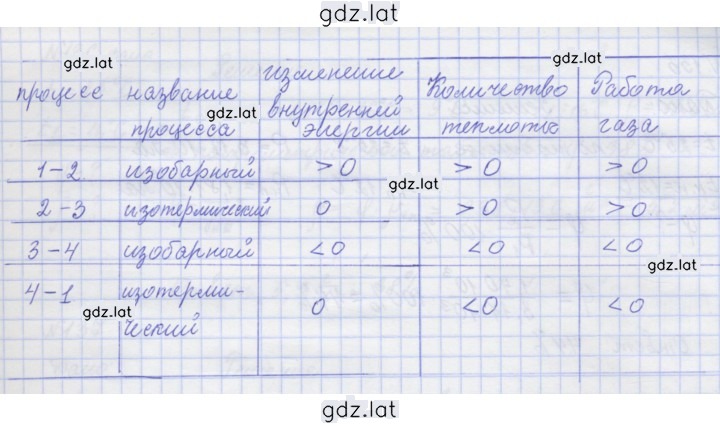 gdz.lat
gdz.lat
gdz.lat
процесс название процесса изменение внутренней энергии Количество теплоты Работа газа
gdz.lat
1-2 изобарный >0 >0 >0
gdz.lat
2-3 изотермический 0 >0 >0
3-4 изобарный <0 <0 <0
gdz.lat
4-1 изотерми-
ческий 0 <0 <0
gdz.lat
gdz.lat